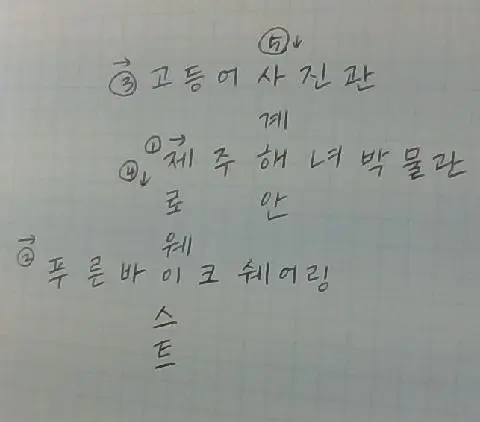 ⑤↓
→
③ 고등어사진관
계
① → 제주해녀박물관
④↓
로 안
웨
→
② 푸른바이크쉐어링
스
트